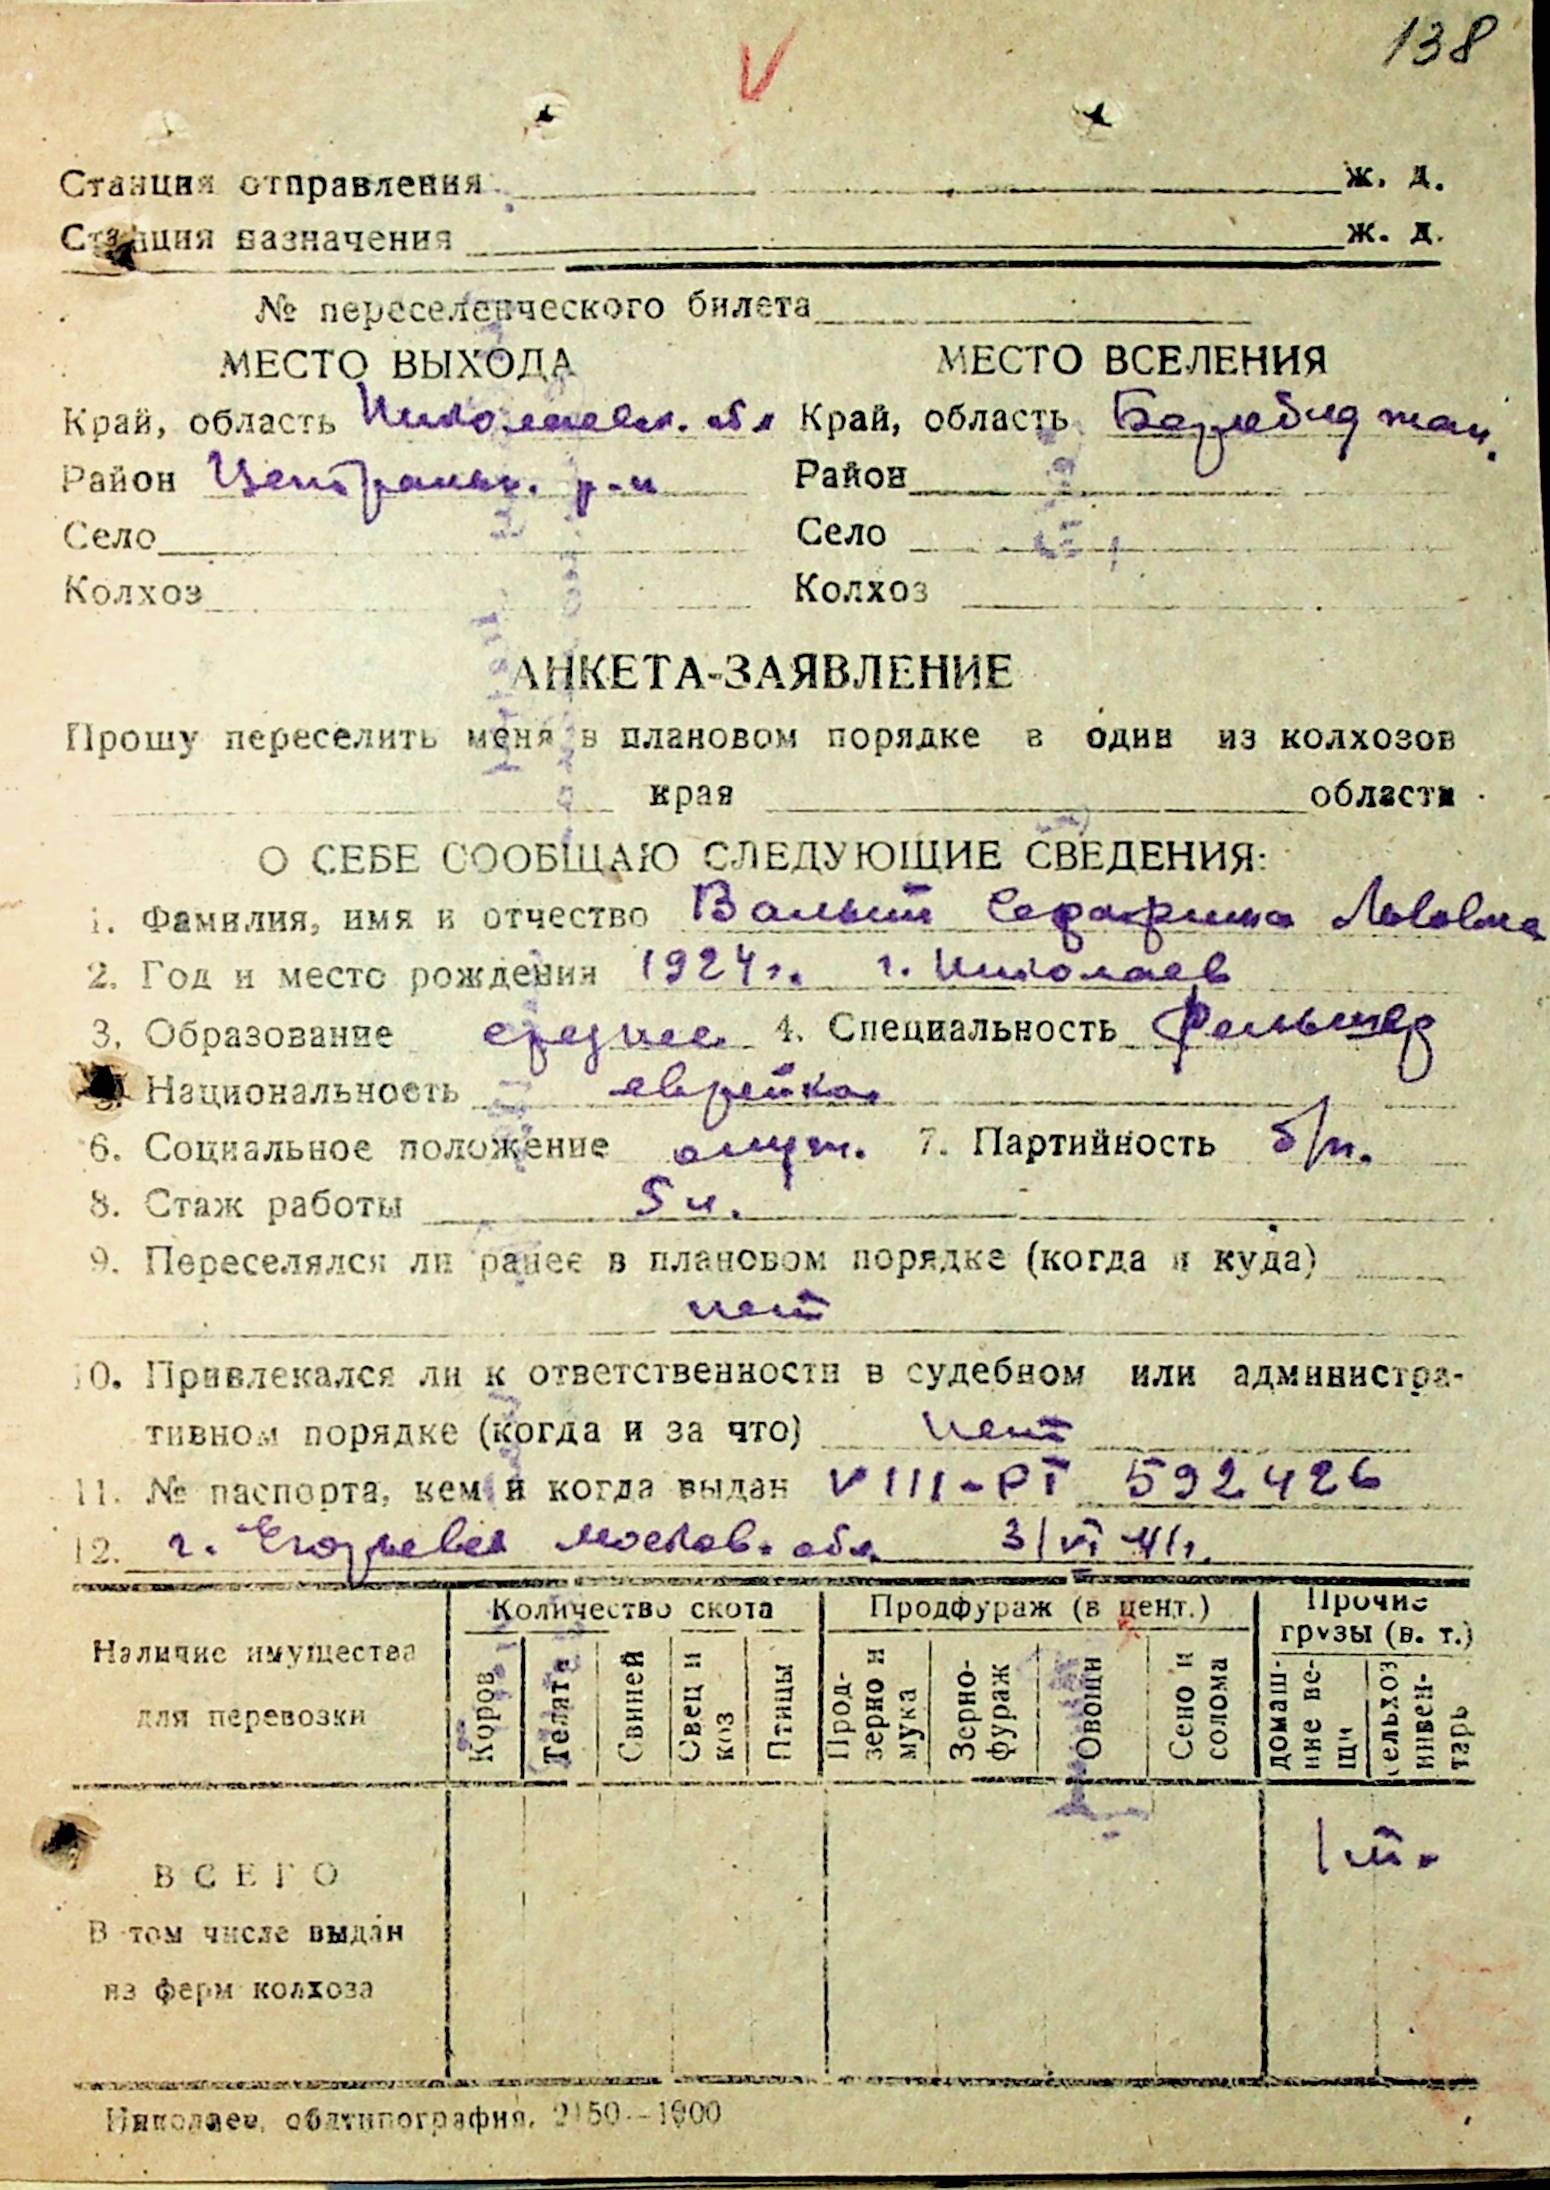 138
Станция отправления ж. д.
Станция назначения ж. д.
№ переселенческого билета
МЕСТО ВЫХОДА МЕСТО ВСЕЛЕНИЯ
Край, область Николаевск. обл Край, область Бирабиджан.
Район Центральн. р-н Район
Село Село
Колхоз Колхоз
АНКЕТА-ЗАЯВЛЕНИЕ
Прошу переселить меня в плановом порядке в один из колхозов
края области
О СЕБЕ СООБЩАЮ СЛЕДУЮЩИЕ СВЕДЕНИЯ:
1. Фамилия, имя и отчество Вальт Серафима Львовна
2. Год и место рождения 1924 г. г. Николаев
3. Образование среднее 4. Специальность Фельшер
5. Национальность еврейка
6. Социальное положение служ. 7. Партийность б/п.
8. Стаж работы 5 л.
9. Переселялся ли ранее в плановом порядке (когда и куда)
нет
10. Привлекался ли к ответственности в судебном или администра-
тивном порядке (когда и за что) нет
11. № паспорта, кем и когда выдан VIII-РТ 592426
12. г. Егорьевск Москов. обл. 3/VI 41г.
Наличие имущества для перевозки
Количество скота Продфураж (в цент.) Прочие грузы (в. т.)
Коров Телята Свиней Свец и коз Птицы Прод-зерно и мука Зерно-фураж Овощи Сено и солома домаш-ние ве-щи сельхоз инвен-тарь
ВСЕГО 1 т.
В том числе выдан
из ферм колхоза
Николаев, облтипография. 2150—1000